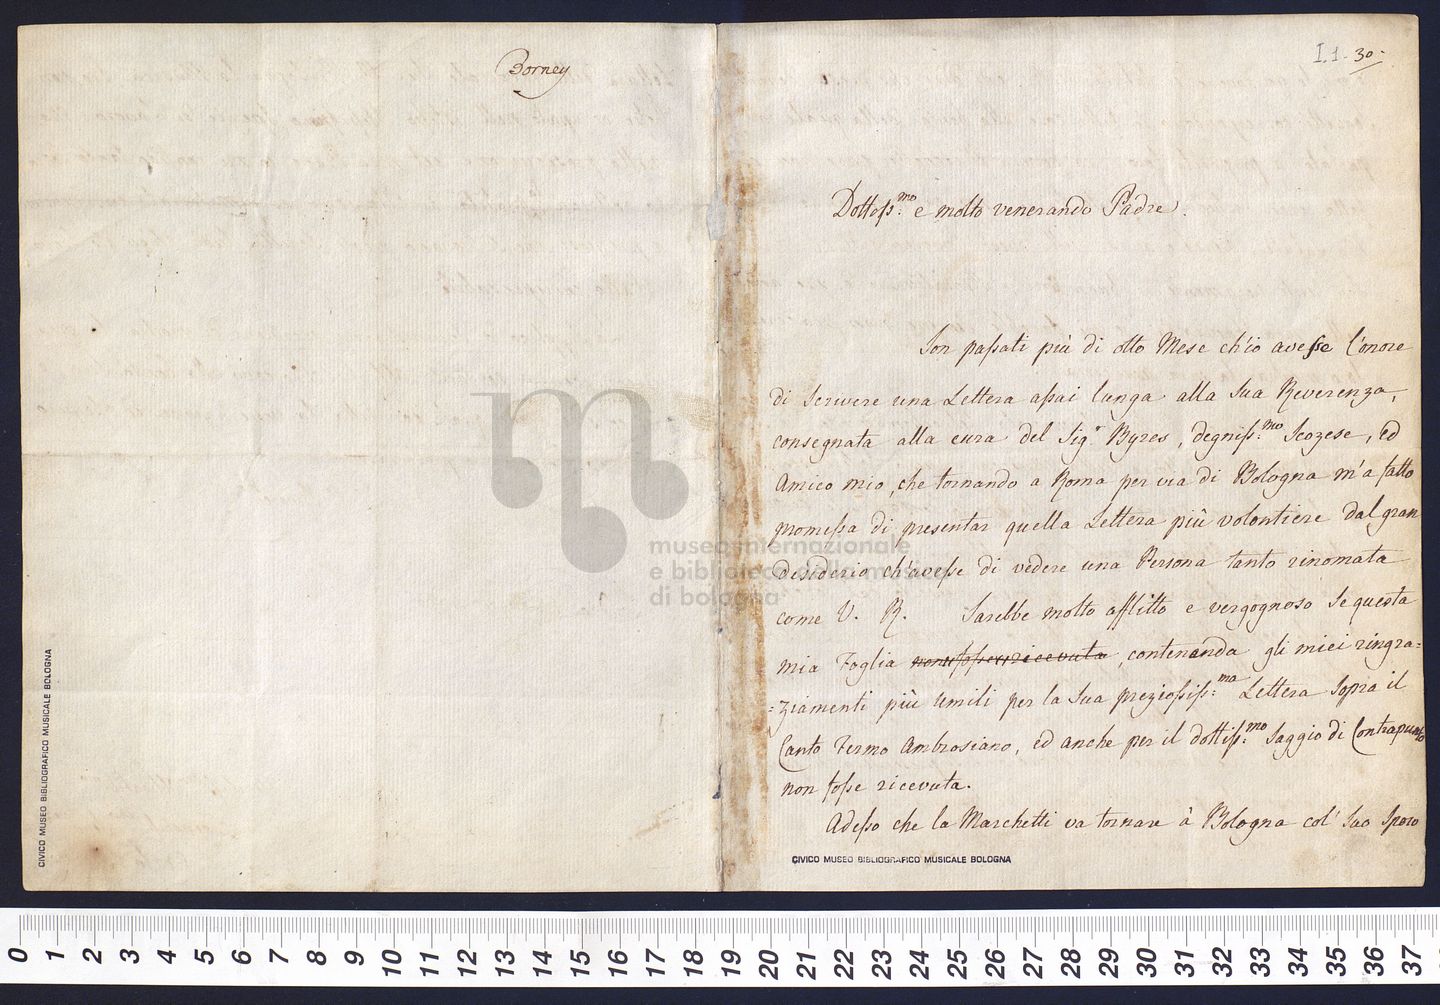 Borney
I.1-30-
Dottoss.mo e molto venerando Padre.
Son passati più di otto Mese ch'io avesse l'onore
di scrivere una Lettera assai lunga alla Sua Reverenza,
consegnata alla cura del Sigr Byres, degniss.mo Scozese, ed
Amico mio, che tornando a Roma per via di Bologna m'a fatto
promessa di presentar quella Lettera più volontiere dal gran
desiderio ch'avesse di vedere una Persona tanto rinomata
come V. R. Sarebbe molto afflitto e vergognoso se questa
mia Foglia non fosse ricevuta, contenenda gli miei ringra=
=ziamenti più umili per la Sua preziosiss.ma Lettera sopra il
Canto Fermo Ambrosiano, ed anche per il dottiss.mo Saggio di Contrapunto
non fosse ricevuta.
Adesso che la Marchetti va tornare à Bologna col' Suo Sposo
museo internazionale
e biblioteca della musica
di bologna
CIVICO MUSEO BIBLIOGRAFICO MUSICALE BOLOGNA
CIVICO MUSEO BIBLIOGRAFICO MUSICALE BOLOGNA
0 1 2 3 4 5 6 7 8 9 10 11 12 13 14 15 16 17 18 19 20 21 22 23 24 25 26 27 28 29 30 31 32 33 34 35 36 37